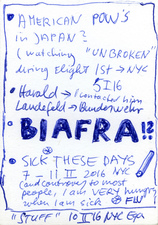 AMERICAN POW'S
in JAPAN?
(watching "UNBROKEN"
during flight IST → NYC
5 II 16
Harald → I contacted him
Landefeld → Bundeswehr
BIAFRA!?
SICK THESE DAYS
7 – 11 II 2016 NYC
(and contrary to most
people, I am VERY hungry
when I am sick FLU
"STUFF" 10 II 16 NYC